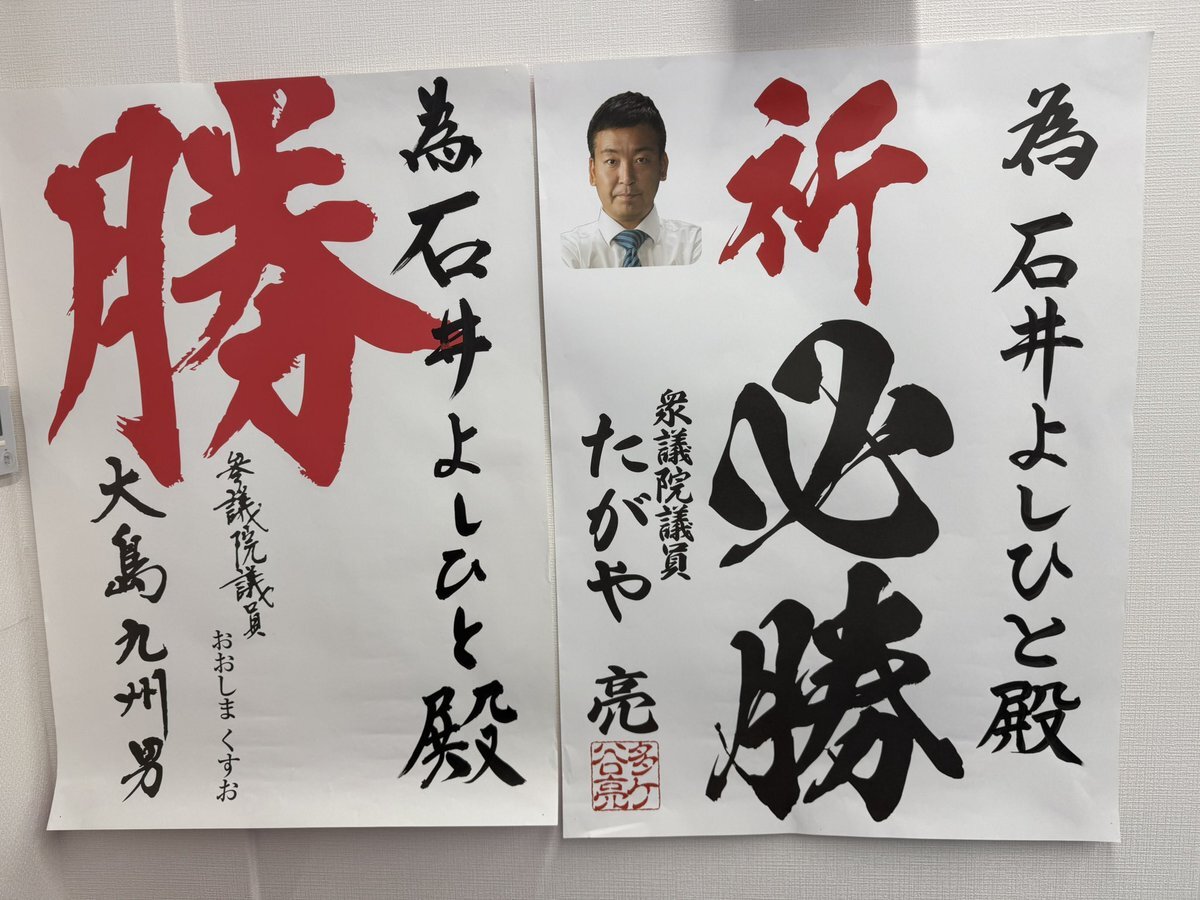 為 石井よしひと殿
祈
必勝
衆議院議員
たがや 亮
多ケ谷亮
為石井よしひと殿
勝
参議院議員 おおしま くすお
大島九州男